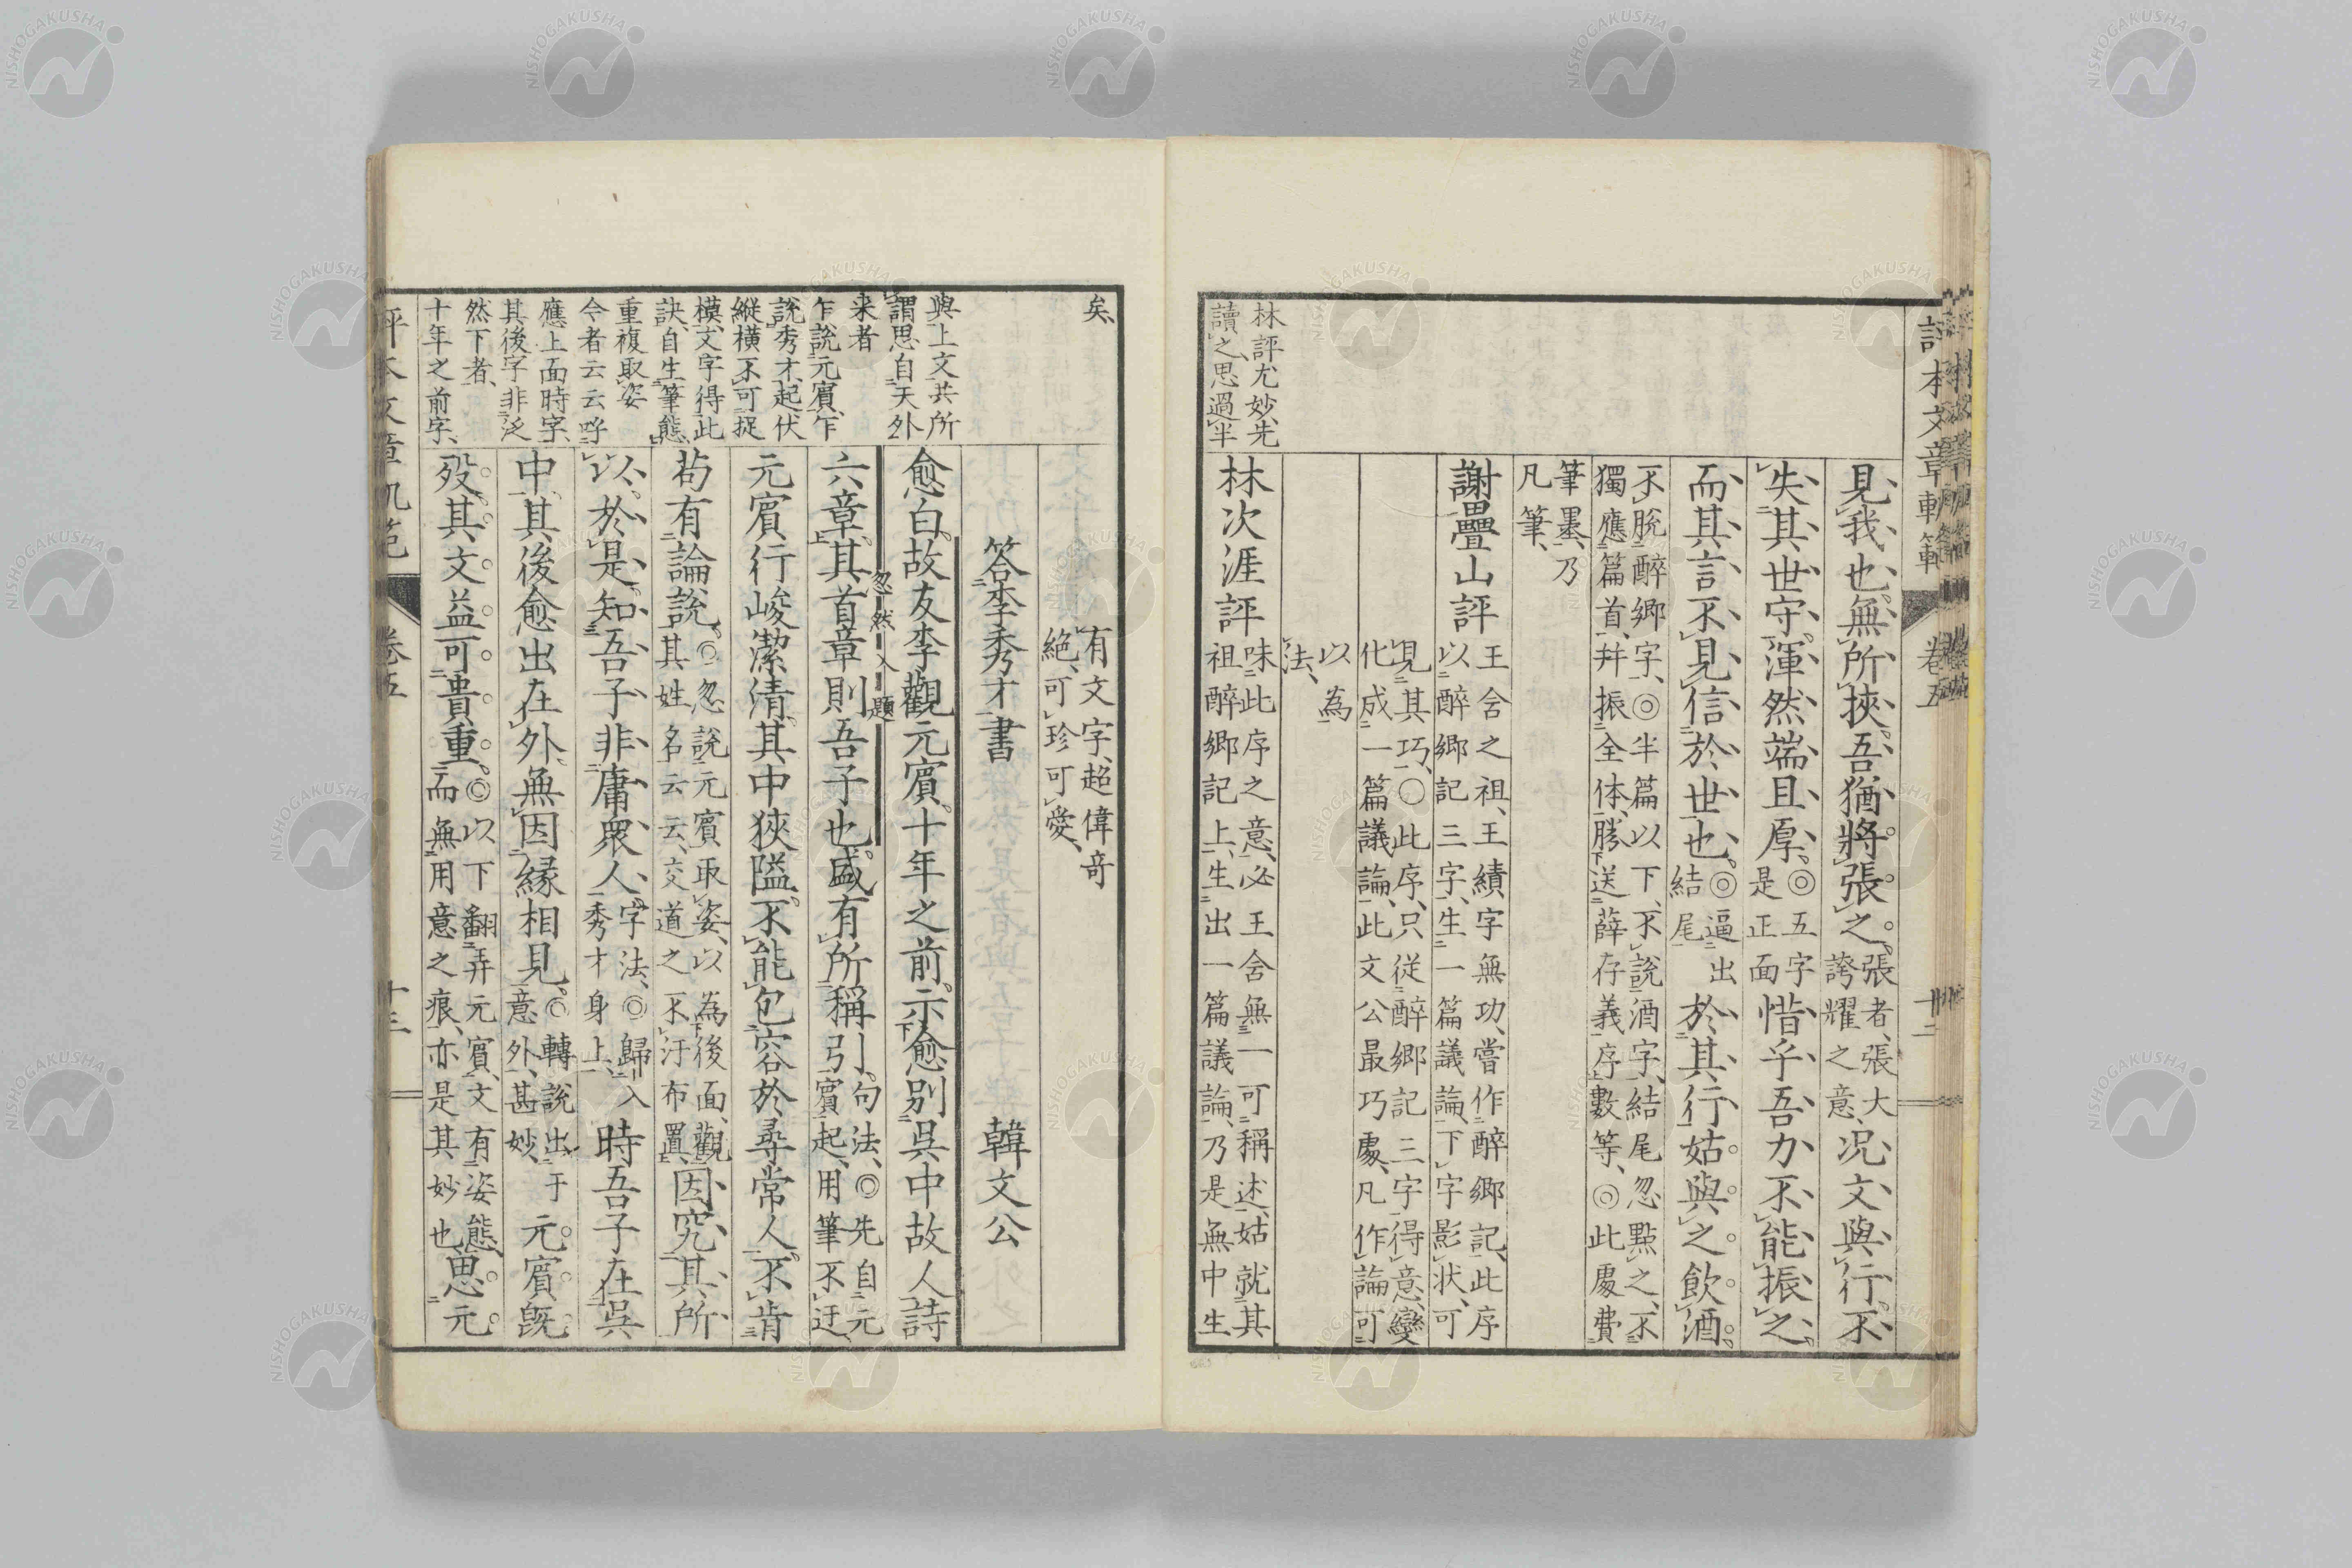 評本文章軌範
卷五
十二
見我也無所挾吾猶將張之
張者張大
誇耀之意
况文與行不
失其世守渾然端且厚
◎五字
是正面
惜乎吾力不能振之
而其言不見信於世也
◎逼出
結尾
於其行姑與之飲酒
不脫醉鄉字◎半篇以下不說酒字結尾忽點之不
獨應篇首幷振全体勝送薛存義序數等◎此處費
筆墨乃
凡筆
謝疊山評
王舍之祖王績字無功嘗作醉鄉記此序
以醉鄉記三字生一篇議論下字影狀可
見其巧○此序只從醉鄉記三字得意變
化成一篇議論此文公最巧處凡作論可
以為
法
林次涯評
味此序之意必王舍無一可稱述姑就其
祖醉鄉記上生出一篇議論乃是無中生
林評尤妙先
讀之思過半
矣
有文字超偉奇
絕可珍可愛
答李秀才書
韓文公
與上文共所
謂思自天外
来者
愈白故友李觀元賓十年之前示愈別吳中故人詩
忽然入題
六章其首章則吾子也盛有所稱引
句法◎先自元
賓起用筆不迂
乍說元賓乍
說秀才起伏
縱橫不可捉
模文字得此
訣自生筆態
元賓行峻潔清其中狹隘不能包容於尋常人不肯
苟有論說
◎忽說元賓取姿以為後面觀
其姓名云云交道之不汙布置
因究其所
重複取姿
今者云云呼
應上面時字
其後字非泛
然下者
以於是知吾子非庸衆人
字法◎歸入
秀才身上
時吾子在吳
中其後愈出在外無因緣相見
◎轉說出于
意外甚妙
元賓既
十年之前字
歿其文益可貴重
◎以下翻弄元賓文有姿態
而無用意之痕亦是其妙也
思元
評本文章軌范
卷五
十三